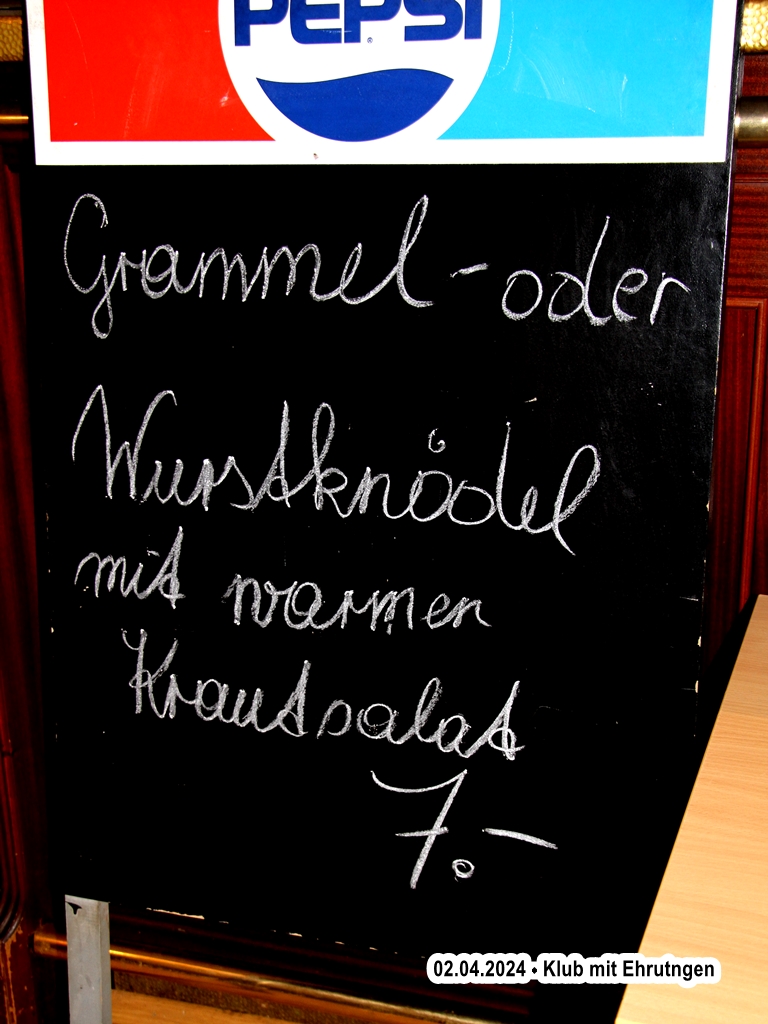 PEPSI
Grammel-oder
Wurstknödel
mit warmen
Krautsalat
7.-
02.04.2024 • Klub mit Ehrutngen